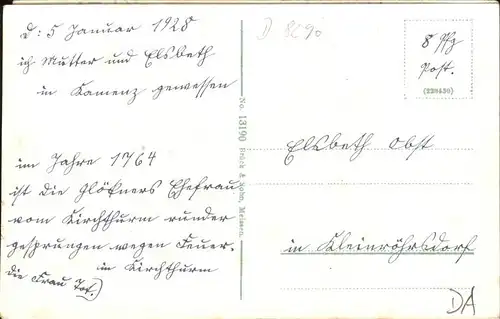 d: 5 Januar 1928
ich Mutter und Elsbeth
in Kamenz gewessen
im Jahre 1764
ist die Glökners Ehefrau
vom Kirchturm runder
gesprungen wegen Feuer.
im Kirchturm
die Frau Tot.)
No. 13190 Brück & Sohn, Meissen.
D 8290
8 Pfg
Post.
(229430)
Elsbeth Obst
in Kleinröhrsdorf
DA